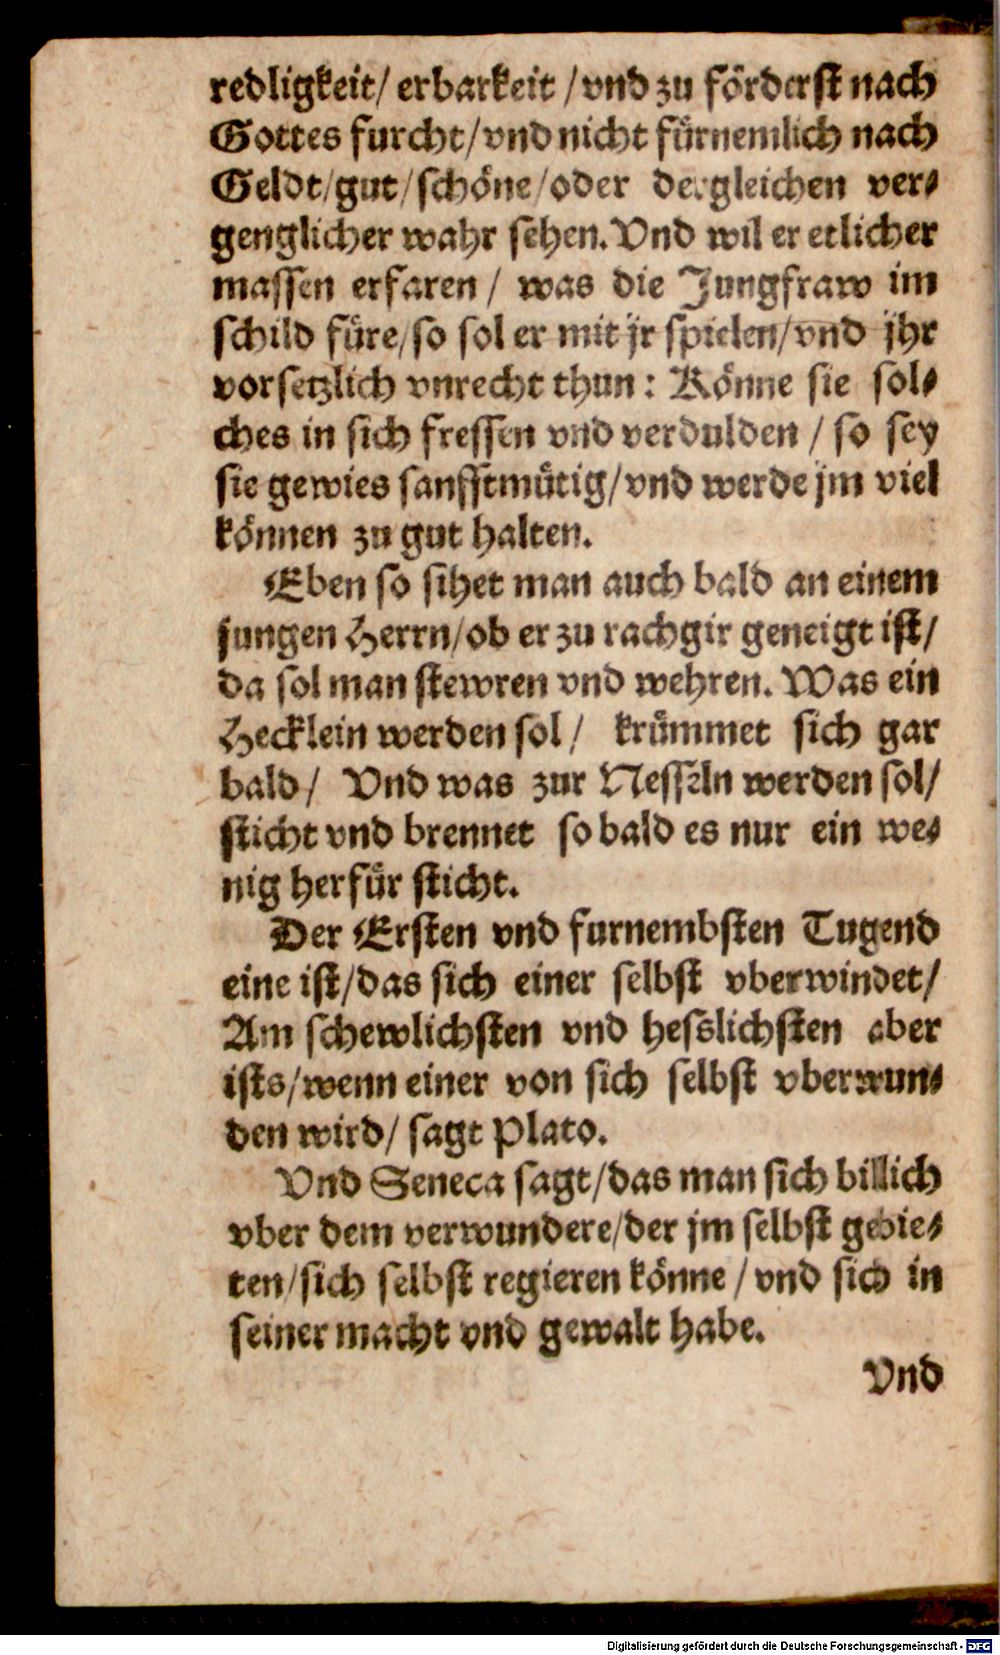 redligkeit/ erbarkeit /vnd zu förderst nach
Gottes furcht/vnd nicht fürnemlich nach
Geldt/gut/schöne/oder dergleichen ver⸗
genglicher wahr sehen. Vnd wil er etlicher
massen erfaren / was die Jungfraw im
schild füre/so sol er mit jr spielen/vnd jhr
vorsetzlich vnrecht thun : Könne sie sol⸗
ches in sich fressen vnd verdulden / so sey
sie gewies sanfftmütig/vnd werde jm viel
können zu gut halten.
Eben so sihet man auch bald an einem
jungen Herrn/ob er zu rachgir geneigt ist/
da sol man stewren vnd wehren. Was ein
Hecklein werden sol / krümmet sich gar
bald / Vnd was zur Nesseln werden sol/
sticht vnd brennet so bald es nur ein we⸗
nig herfür sticht.
Der Ersten vnd furnembsten Tugend
eine ist/das sich einer selbst vberwindet/
Am schewlichsten vnd hesslichsten aber
ists/wenn einer von sich selbst vberwun⸗
den wird/ sagt Plato.
Vnd Seneca sagt/das man sich billich
vber dem verwundere/der jm selbst gebie⸗
ten/sich selbst regieren könne / vnd sich in
seiner macht vnd gewalt habe.
Vnd
Digitalisierung gefördert durch die Deutsche Forschungsgemeinschaft - DFG